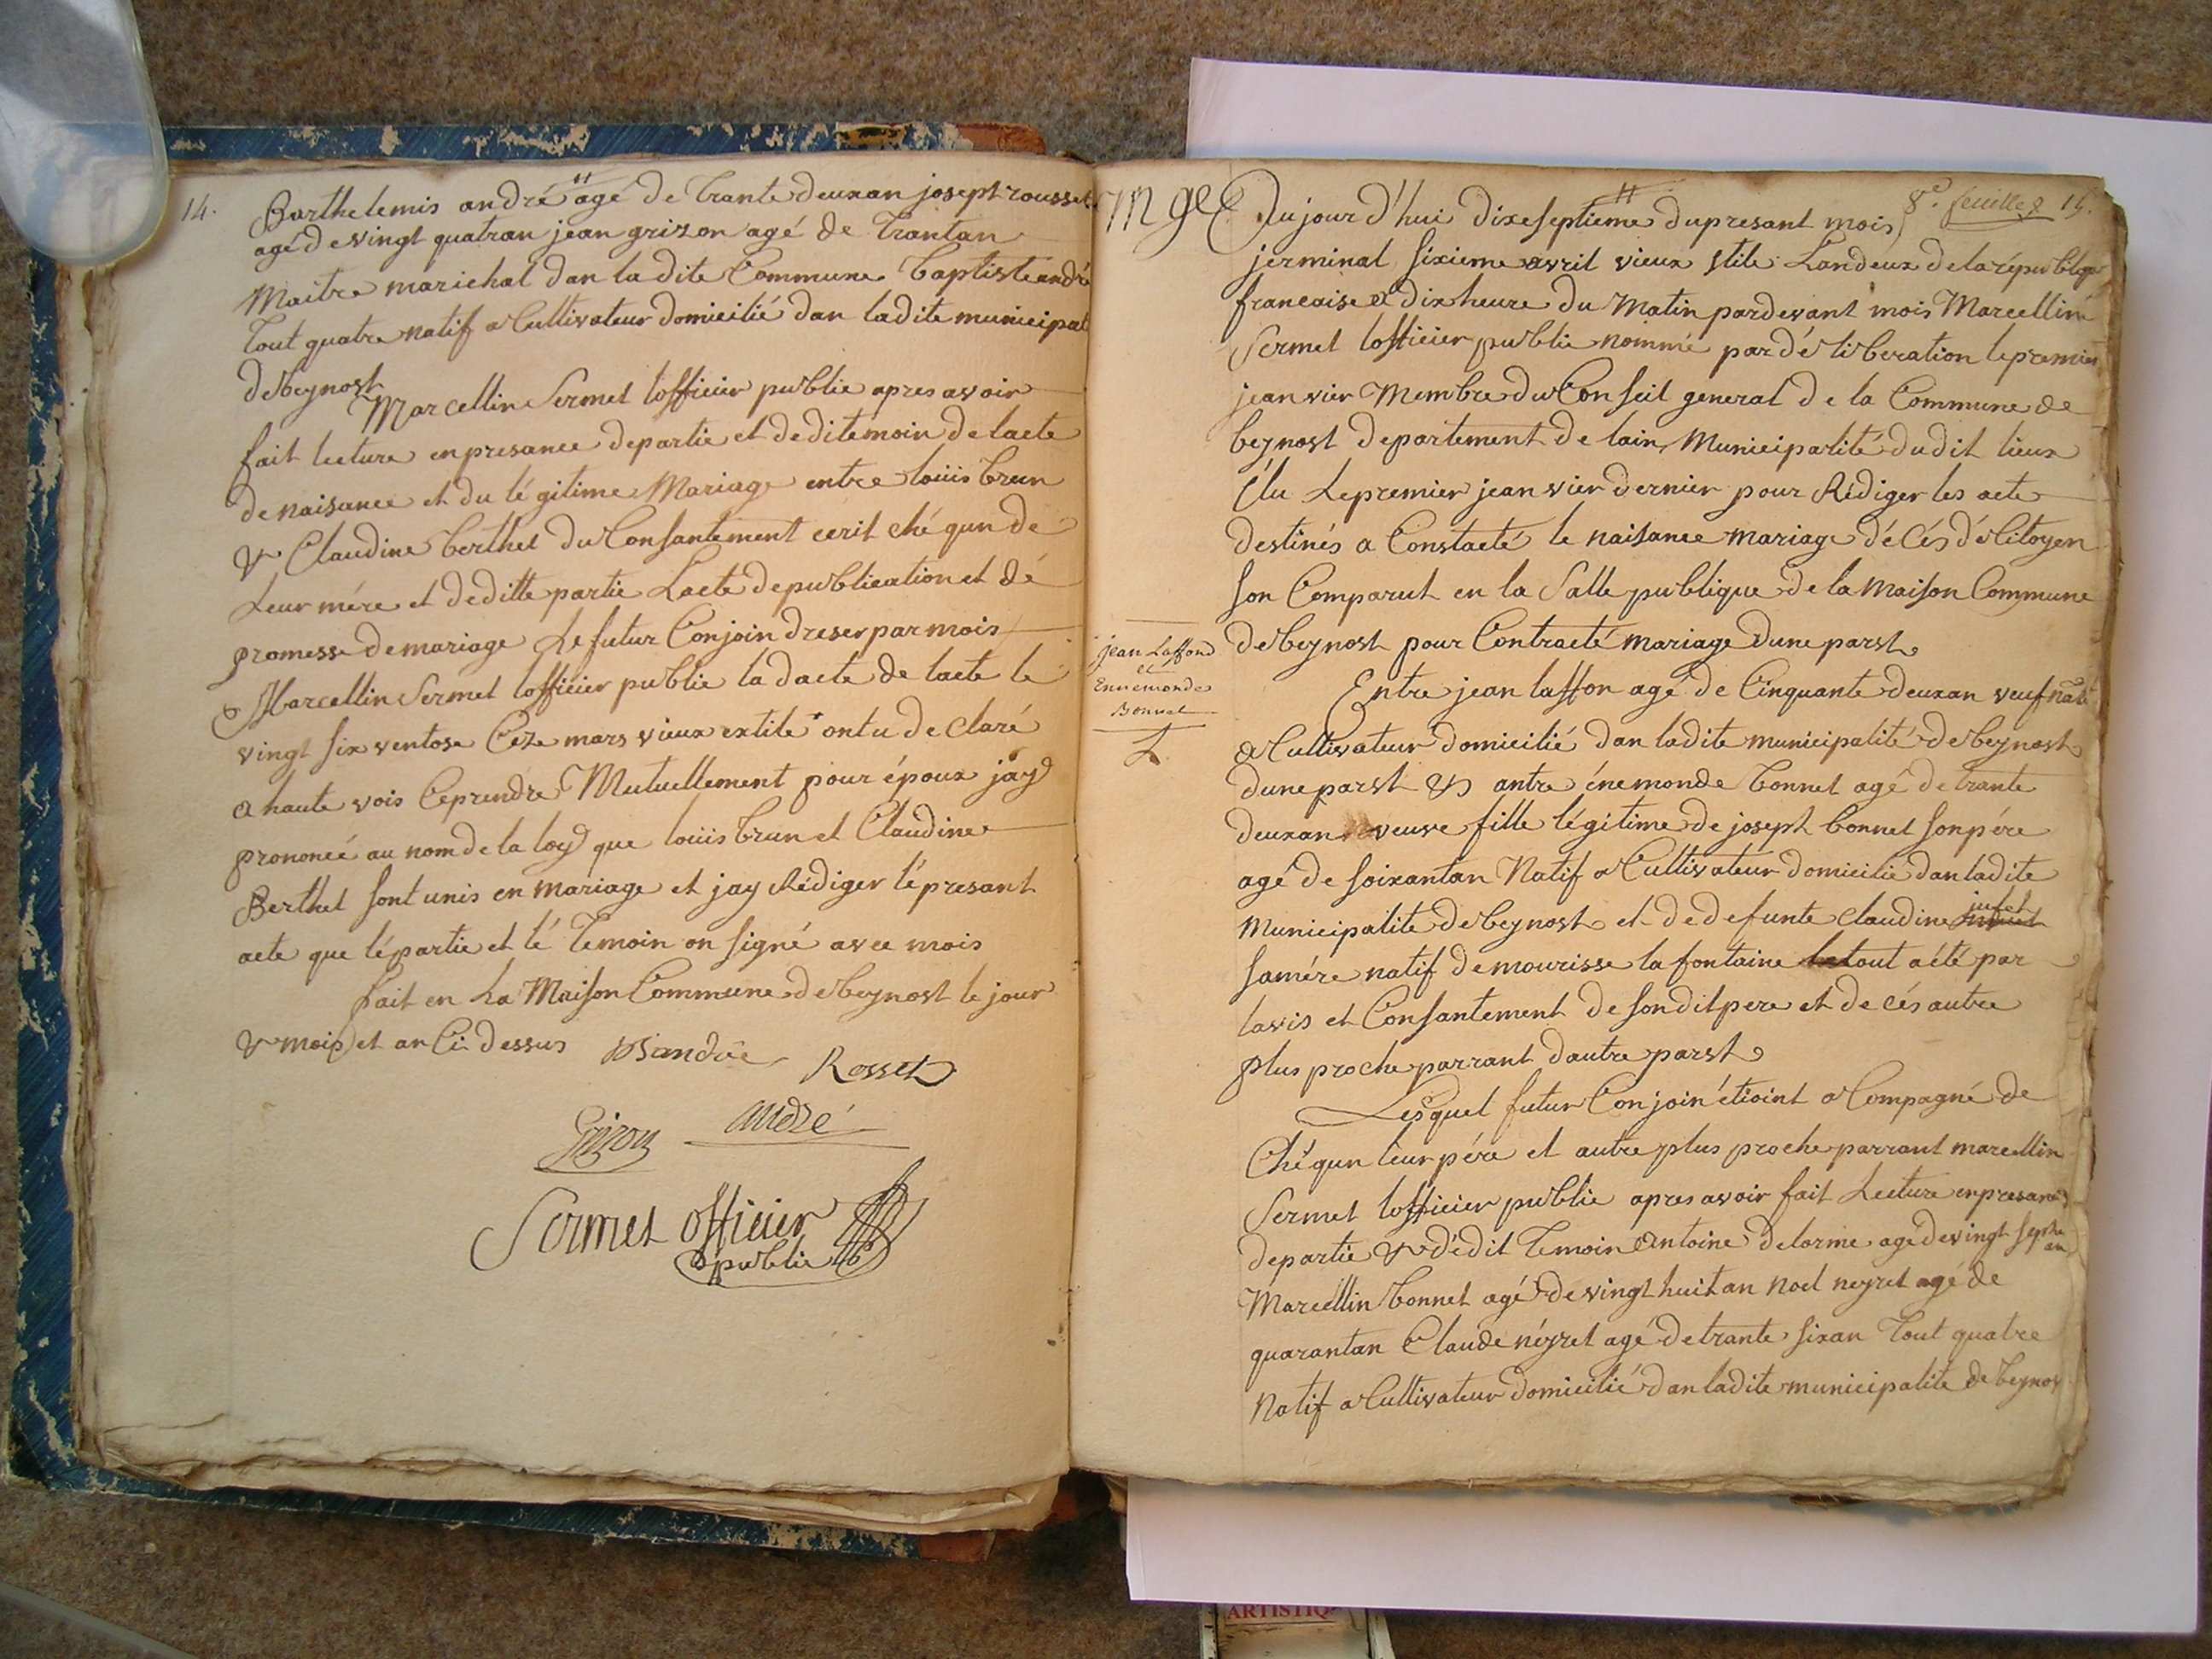 14.
Barthelemis andré agé de trante deuxan josept rousset
agé de vingt quatran jean grizon agé de trantan
Maitre marichal dan la dite Commune baptiste andré
tout quatre natif a Cultivateur domicilié dan ladite municipal
de beynost
Marcellin Sermet lofficier public apres avoir
fait lecture en presance de partie et de dite moin de lacte
de naisance et du légitime Mariage entre louiis brun
& Claudine berthet du Consantement ecrit chéqun de
Leur mére et de ditte partie Lacte de publication et dé
promesse de mariage Le futur Conjoin dreser par mois
Marcellin Sermet lofficier public la dacte de lacte le
vingt six ventose Ceze mars vieux extile ont u de claré
a haute vois Ceprendre Mutuellement pour époux jay
prononcé au nom de la loy que louiis brun et Claudine
Berthet sont unis en mariage et jay Rédiger lé presant
acte que lé partie et lé temoin on signé avec mois
fait en La Maison Commune de beynost le jour
& mois et an Ci dessus Bandré Rosset
Grizon André
Sermet officier
public
8e. feuille 15.
Mge Du jour d'hui dixe septieme du presant mois
jerminal sixieme avril vieux stile Landeux de la républiqe
francaise a dix heure du Matin pardevant mois Marcellin
Sermet lofficier public nommé par déliberation le premier
jeanvier Membre du Conseil general de la Commune de
beynost departement de lain Municipalité dudit lieux
élu Le premier jeanvier dernier pour Rédiger les acte
destinés a Constacté le naisance mariage décés dé Citoyen
son Comparut en la Salle publique de la Maison Commune
de beynost pour Contracté mariage dune parst
jean Laffond
et
Ennemonde
Bonnet
Entre jean laffon agé de Cinquante deuxan veuf natif
a Cultivateur domicilié dan ladite municipalité de beynost
dune parst & antre énemonde bonnet agé de trante
deuxan veuve fille légitime de joseph bonnet son pére
agé de soixantan Natif a Cultivateur domicilié dan ladite
Municipalite de beynost et de defunte Claudine jufet
samére natif de mourisse la fontaine le tout a été par
lavis et Consantement de son dit pere et de cés autre
plus proche parrant dautre parst
Lesquel futur Conjoin étioint a Compagné de
Chéqun leur pére et autre plus proche parrant marcellin
Sermet lofficier public apres avoir fait Lecture en presance
de partie & dédit temoin Antoine delorme agé de vingt septe
an
Marcellin bonnet agé de vingt huit an noel neyret agé de
quarantan Claude néyret agé de trante sixan tout quatre
Natif a Cultivateur domicilié dan ladite municipalite de beynos
ARTISTIQ